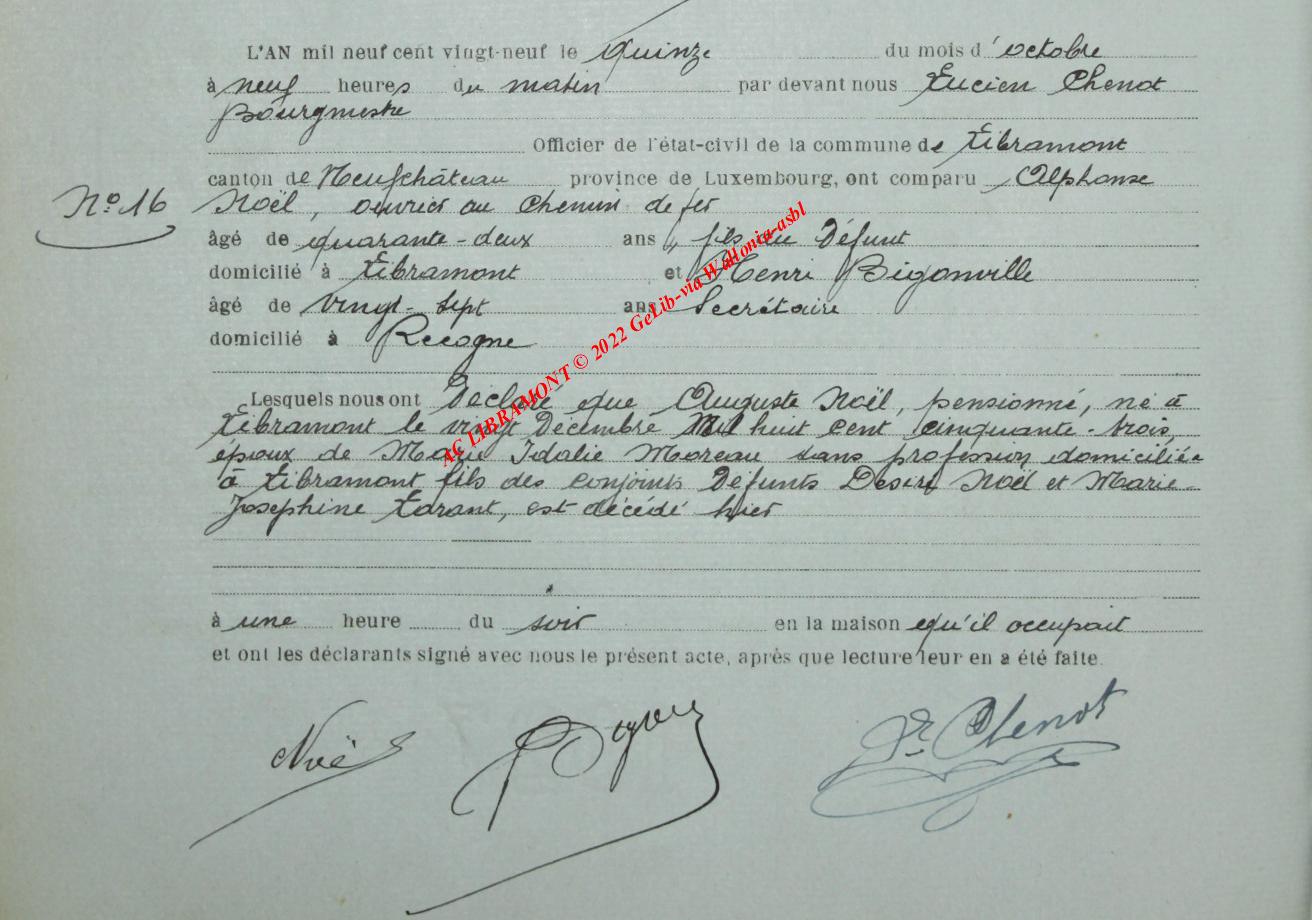 L'AN mil neuf cent vingt-neuf le quinze du mois d'octobre
à neuf heures du matin par devant nous Lucien Chenot
Bourgmestre
Officier de l'état-civil de la commune de Libramont
canton de Neufchâteau province de Luxembourg, ont comparu Alphonse
N° 16 Noël, ouvrier au chemin de fer
âgé de quarante-deux ans, fils du Défunt
domicilié à Libramont et Henri Bigonville
âgé de vingt-sept ans Secrétaire
domicilié à Recogne
Lesquels nous ont Déclaré que Auguste Noël, pensionné, né à
Libramont le vingt Décembre Mil huit cent cinquante-trois,
époux de Marie Idalie Moreau sans profession domiciliée
à Libramont fils des conjoints Défunts Désiré Noël et Marie-
Josephine Larant, est décédé hier
à une heure du soir en la maison qu'il occupait
et ont les déclarants signé avec nous le présent acte, après que lecture leur en a été faite.
Noël Dr Chenot
AC LIBRAMONT © 2022 GeLib-via Wallonia-asbl